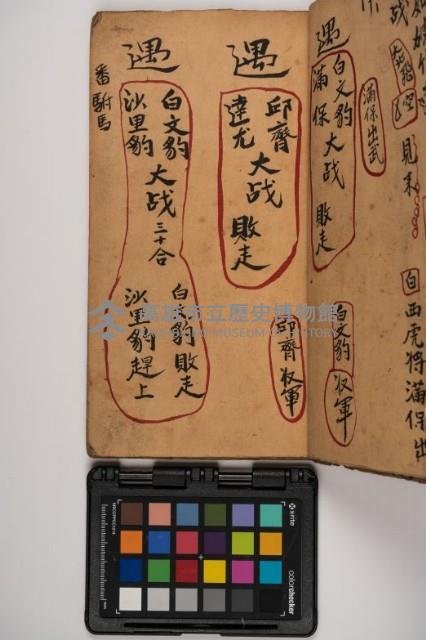 白西虎將滿保出
見來
滿保出武
遇
白文豹
滿保
大战
敗走
白文豹
收軍
遇
邱齊
達尤
大战
敗走
邱齊收軍
遇
白文豹
沙里豹
大战三十合
白豹敗走
沙里豹趕上
番駙馬
高雄市立歷史博物館
KAOHSIUNG MUSEUM OF HISTORY
x-rite
colorchecker